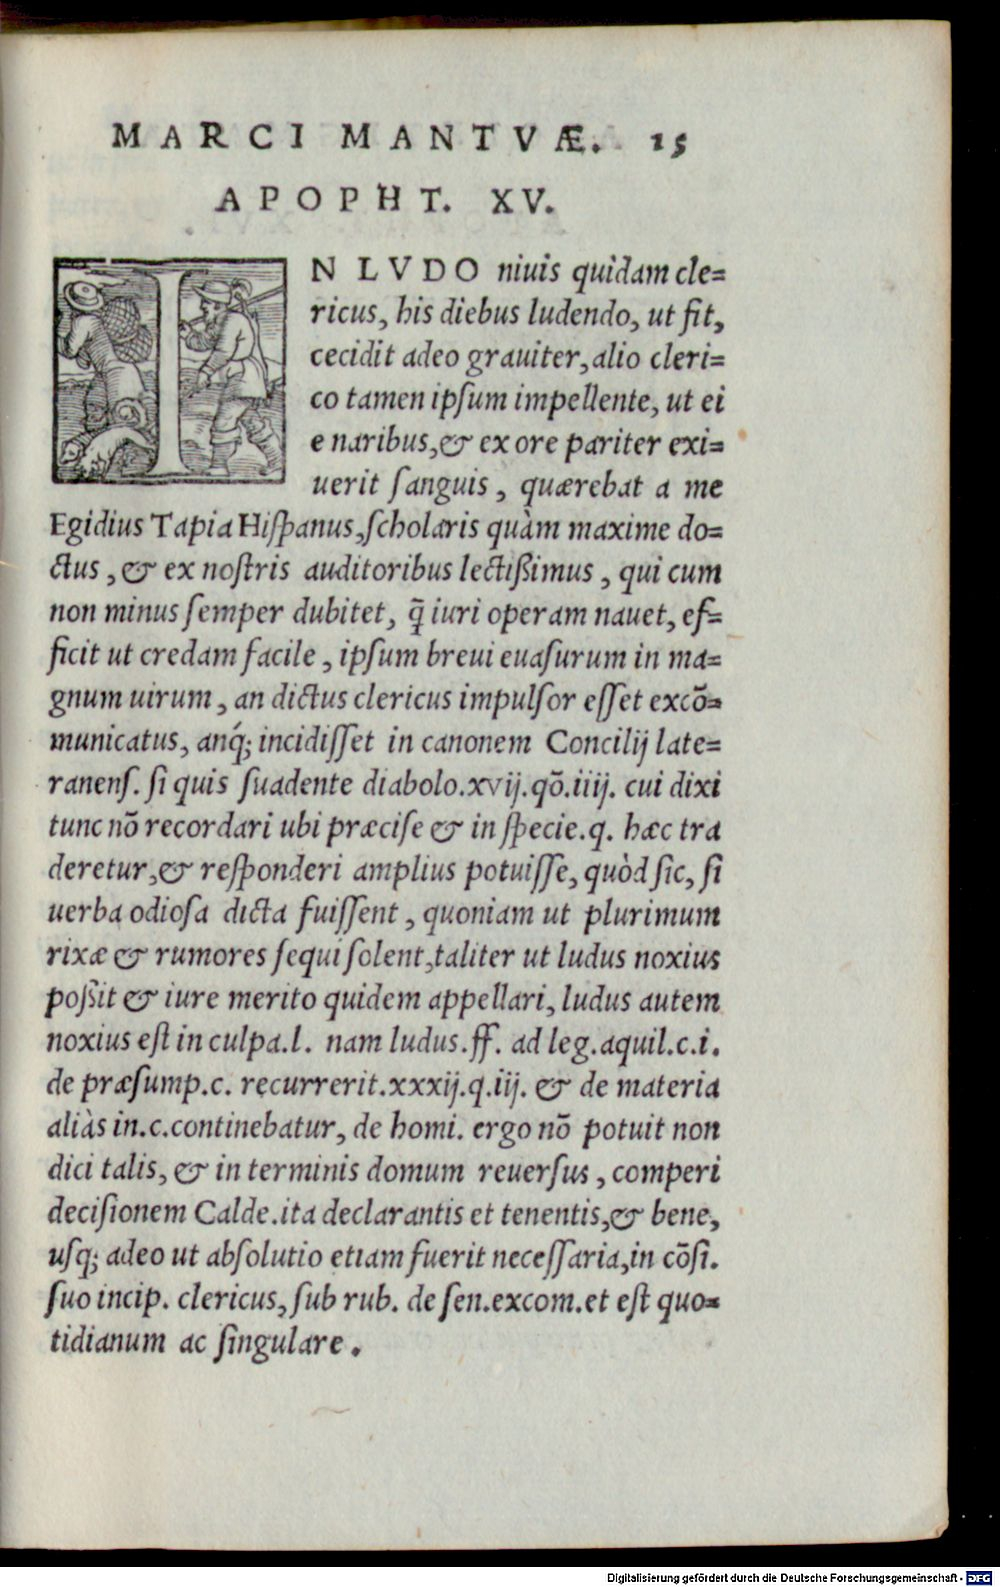 MARCI MANTVÆ. 15
APOPHT. XV.
IN LVDO niuis quidam cle=
ricus, his diebus ludendo, ut fit,
cecidit adeo grauiter, alio cleri=
co tamen ipſum impellente, ut ei
e naribus, & ex ore pariter exi=
uerit ſanguis, quærebat a me
Egidius Tapia Hiſpanus, ſcholaris quàm maxime do=
ctus, & ex noſtris auditoribus lectißimus, qui cum
non minus ſemper dubitet, q̃ iuri operam nauet, ef=
ficit ut credam facile, ipſum breui euaſurum in ma=
gnum uirum, an dictus clericus impulſor eſſet excõ=
municatus, anq́; incidiſſet in canonem Concilij late=
ranenſ. ſi quis ſuadente diabolo.xvij.qõ.iiij. cui dixi
tunc nõ recordari ubi præciſe & in ſpecie.q. hæc tra
deretur, & reſponderi amplius potuiſſe, quòd ſic, ſi
uerba odioſa dicta fuiſſent, quoniam ut plurimum
rixæ & rumores ſequi ſolent, taliter ut ludus noxius
poßit & iure merito quidem appellari, ludus autem
noxius eſt in culpa.l. nam ludus.ff. ad leg.aquil.c.i.
de præſump.c. recurrerit.xxxij.q.iij. & de materia
aliàs in.c.continebatur, de homi. ergo nõ potuit non
dici talis, & in terminis domum reuerſus, comperi
deciſionem Calde.ita declarantis et tenentis, & bene,
uſq; adeo ut abſolutio etiam fuerit neceſſaria, in cõſi.
ſuo incip. clericus, ſub rub. de ſen.excom.et eſt quo=
tidianum ac ſingulare.
Digitalisierung gefördert durch die Deutsche Forschungsgemeinschaft - DFG